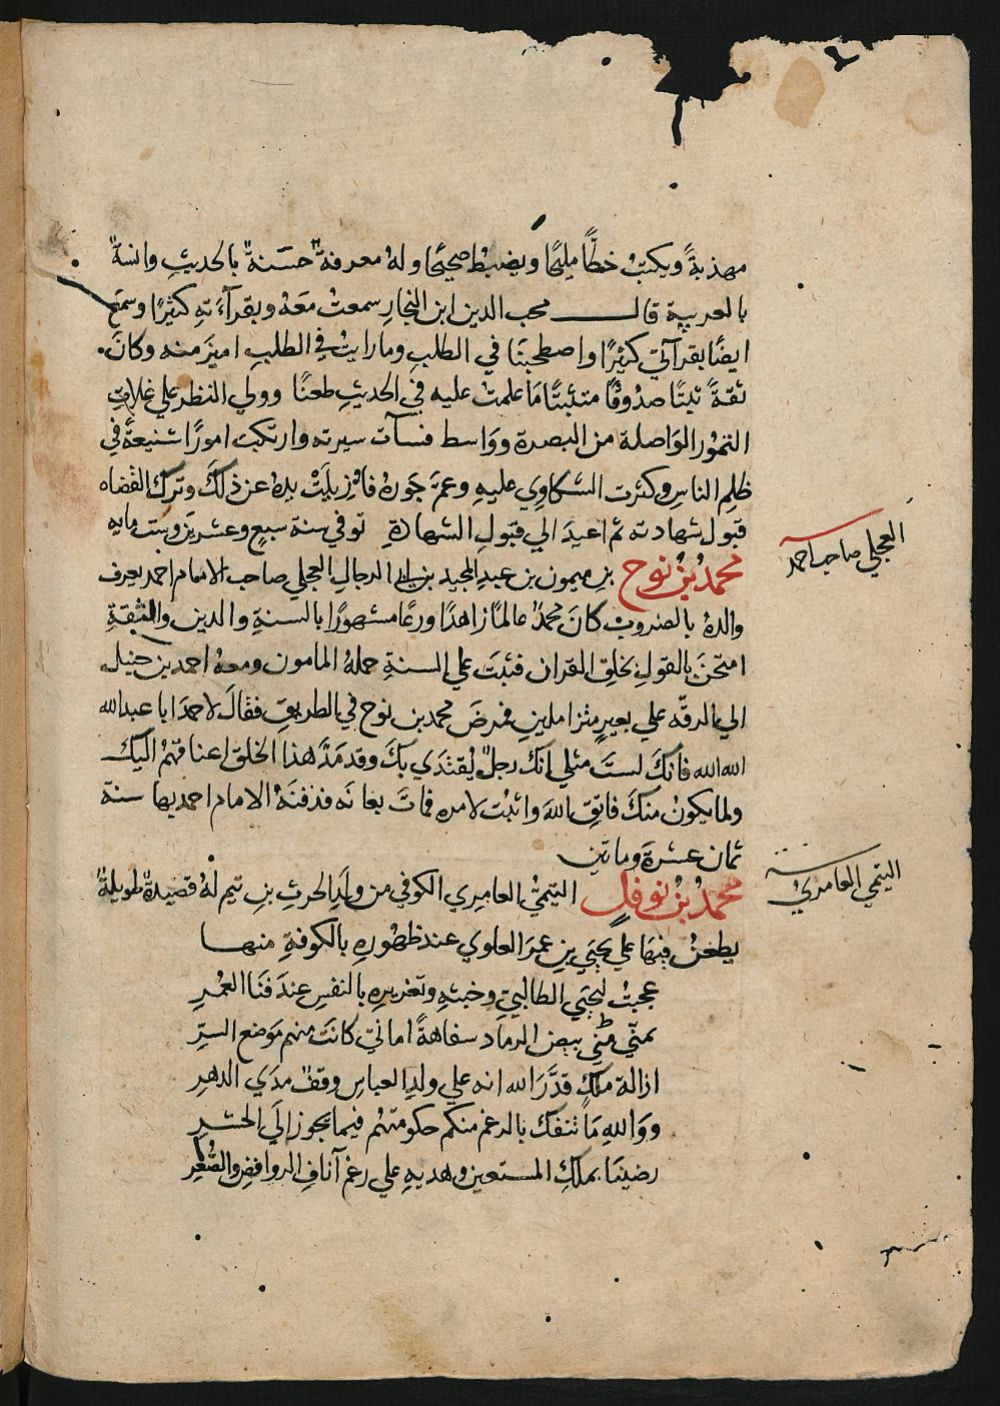 مهذبةً ويكتبُ خطًّا مليحًا ويضبطُ صحيحًا وله معرفةٌ حسَنةٌ بالحديثِ وانسةٌ
بالعربية قالـــــ محب الدين ابن النجارِ سمعتُ معَهُ وبقرآءَتهِ كثيرًا وسمعَ
ايضًا بقرآتي كثيرًا واصطحبنَا في الطلبِ ومارايتُ في الطلبِ اميزَ منه وكانَ.
ثقةً ثبتًا صدُوقًا متثبتًا مَا علمتُ عليه في الحديثِ طعنًا وولي النظر علي غلاتِ
التمُور الوَاصلة من البصرة ووَاسط فسآت سيرته وارتكبَ امورًا شنيعةً في
ظلمِ الناسِ وكثرت الشكاوِي عليهِ وعمَّ جَورهُ فازيلَتْ يدهُ عن ذلكَ وتركَ القضاه
قبول شهادته ثم اعيدَ الي قبولِ الشهادةِ توفي سنة سبعٍ وعشرين وستمايه
العجلي صاحب احمد
محمدُ بنُ نوح بنِ ميمون بن عبدِ المجيد بن ابي الرجالِ العجلي صاحب الامام احمد يعرف
والدهُ بالمضروبِ كانَ محمدٌ عالمًا زاهدًا ورعًا مشهورًا بالسنةِ والدين والثقةِ
امتحنَ بالقولِ بخلقِ القران فثبَتَ علي السنةِ حملهُ المامون ومعهُ احمد بن حنبل
الي الرقّه علي بعيرٍ متزاملينِ فمرضَ محمد بن نوح في الطريقِ فقالَ لاحمدَ ابا عبدالله
الله الله فانكَ لستَ مثلي انك رجلٌ يُقتدَي بكَ وقد مَدَّ هذا الخلق اعناقهُم اليكَ
ولما يكونُ منكَ فاتقِ اللهَ واثبُت لامره فماتَ بعانَه فدفنَهُ الامام احمد بها سنة
ثمان عشرةَ وماتين
التيمي العامري
محمدُ بنُ نوفلٍ التيميُّ العامِري الكوفي من ولَدِ الحرثِ بنِ تيم لهُ قصيدةٌ طويلةٌ
يطعنُ فيهَا علي يحيَي بنِ عمرَ العلوي عند ظهورهِ بالكوفةِ منهـا
عجبتُ ليحيَي الطالبيِّ وخبثهِ وتغريرهِ بالنفسِ عندَ فنَا العُمرِ
تمنّي مُني بيض الرماد سفاهةً امانيّ كانَت منهم مَوضع السترِ
ازالة ملكٍ قدَّرَ الله انه علي ولدِ العباسِ وقفٌ مدَي الدهرِ
ووَاللهِ مَا تنفك بالرغم منكم حكومتهُم فيما يجوز اليَ الحشرِ
رضينَا بملكِ المستعين وهديهِ علي رغم آنافِ الروافضِ والصُّعْرِ